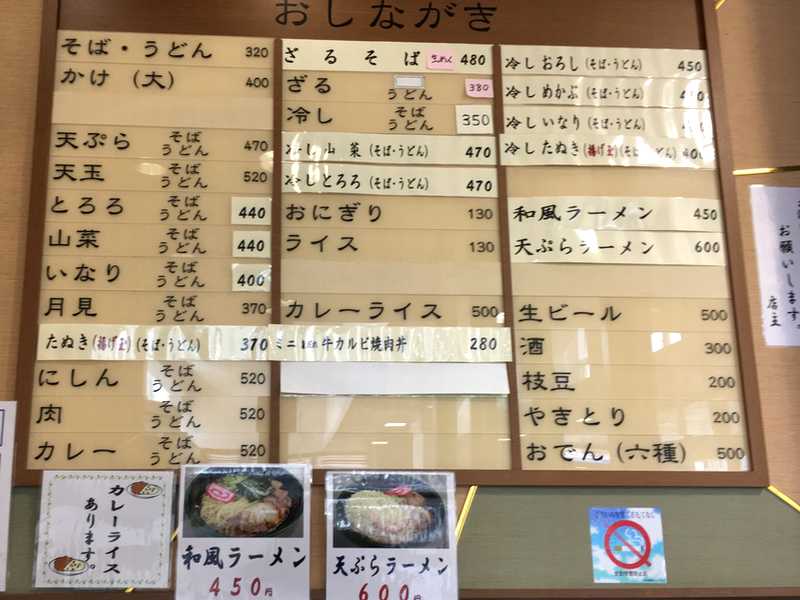 おしながき
そば・うどん 320
かけ (大) 400
天ぷら そば うどん 470
天玉 そば うどん 520
とろろ そば うどん 440
山菜 そば うどん 440
いなり そば うどん 400
月見 そば うどん 370
たぬき (揚げ玉) (そば・うどん) 370
にしん そば うどん 520
肉 そば うどん 520
カレー そば うどん 520
ざるそば 480
ざる うどん 380
冷し そば うどん 350
冷し山菜 (そば・うどん) 470
冷しとろろ (そば・うどん) 470
おにぎり 130
ライス 130
カレーライス 500
ミニ 牛カルビ焼肉丼 280
冷しおろし (そば・うどん) 450
冷しめかぶ (そば・うどん)
冷しいなり (そば・うどん)
冷したぬき (揚げ玉) 400
和風ラーメン 450
天ぷらラーメン 600
生ビール 500
酒 300
枝豆 200
やきとり 200
おでん (六種) 500
お願いします。
店主
カレーライス
あります。
和風ラーメン
450円
天ぷらラーメン
600円